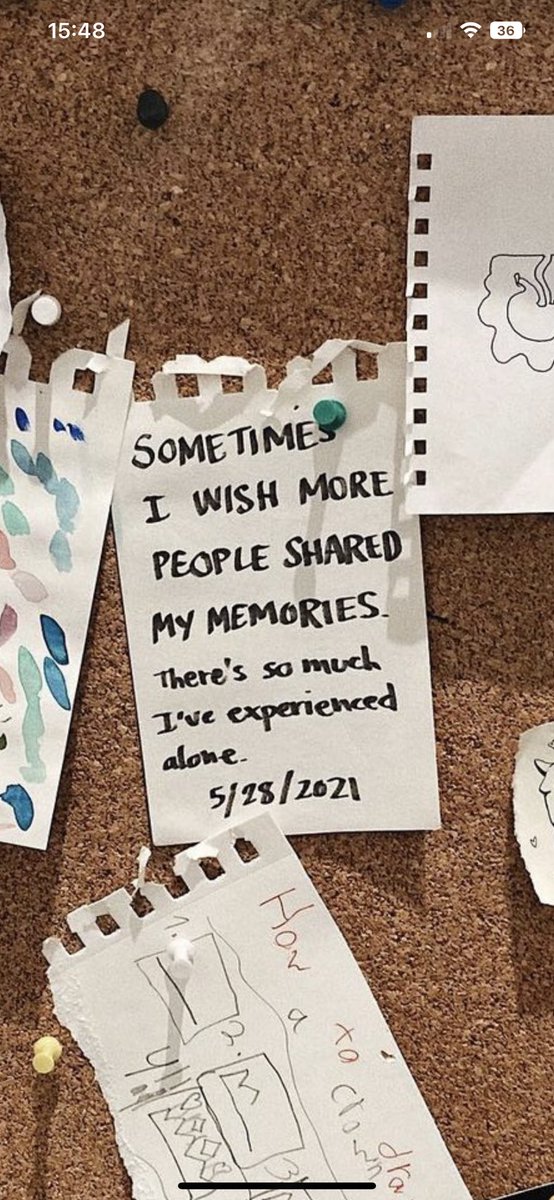 15:48
36
SOMETIMES
I WISH MORE
PEOPLE SHARED
MY MEMORIES.
There's so much
I've experienced
alone.
5/28/2021
How
a
to
draw
clown
1.
2.
3